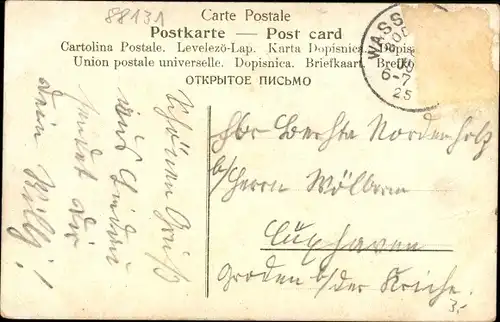 88131
Carte Postale
Postkarte — Post card
Cartolina Postale. Levelezö-Lap. Karta Dopisnica. Dopis
Union postale universelle. Dopisnica. Briefkaart. Brefko
ОТКРЫТОЕ ПИСЬМО
WASS
6-7
25
Schönen Gruß
aus
sendet Dir
Dein Willy!
Bertha Nordenholz
b/Herrn Wölbern
Cuxhaven
Groden b/der Kirche.
3,-